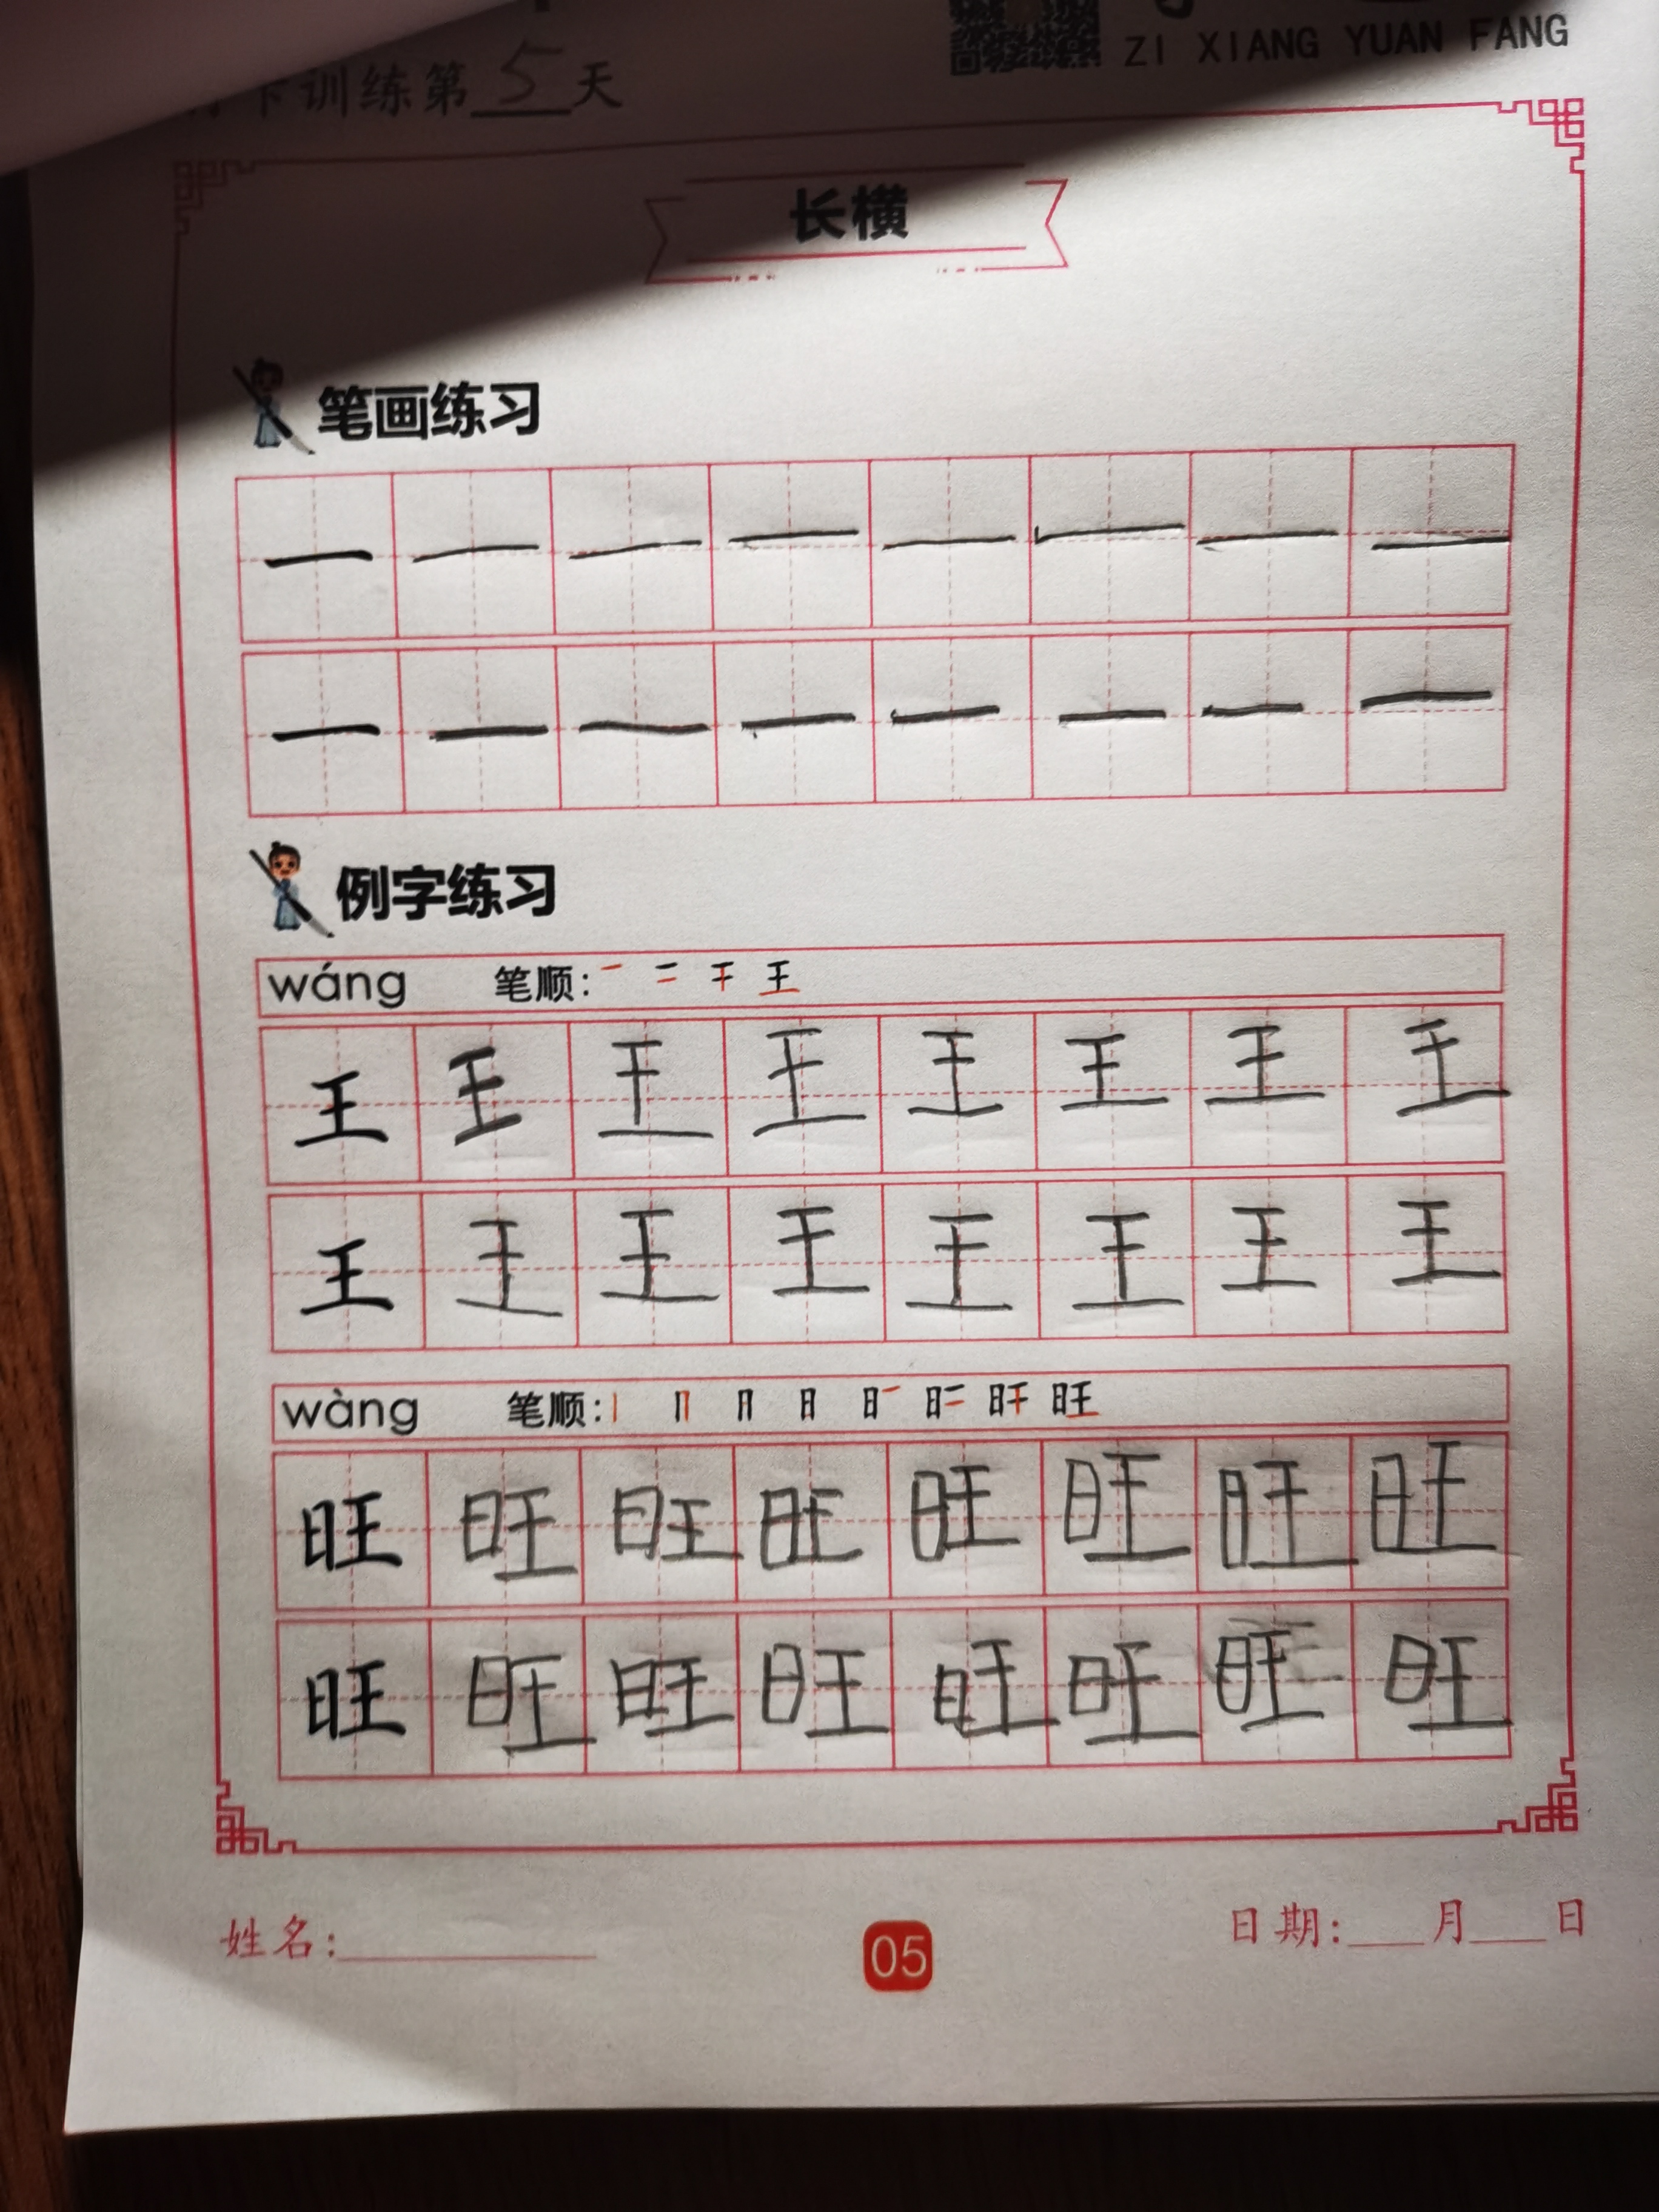 卡训练第5天
ZI XIANG YUAN FANG
长横
笔画练习
一 一 一 一 一 一 一 一
一 一 一 一 一 一 一 一
例字练习
wáng 笔顺:
王 王 王 王 王 王 王 王
王 王 王 王 王 王 王 王
wàng 笔顺:
旺 旺 旺 旺 旺 旺 旺 旺
旺 旺 旺 旺 旺 旺 旺 旺
姓名: 05 日期: 月 日